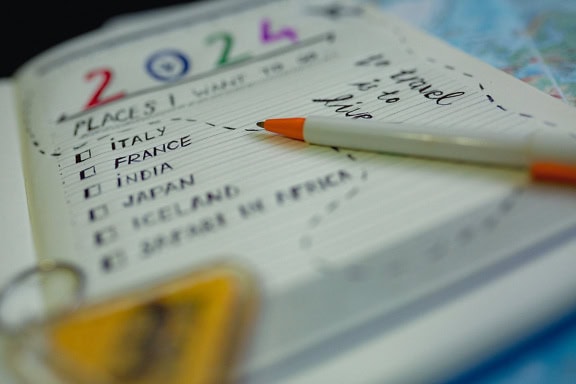 2024
PLACES I WANT TO GO...
to travel
is to
live
ITALY
FRANCE
INDIA
JAPAN
ICELAND
SAFARI IN AFRICA